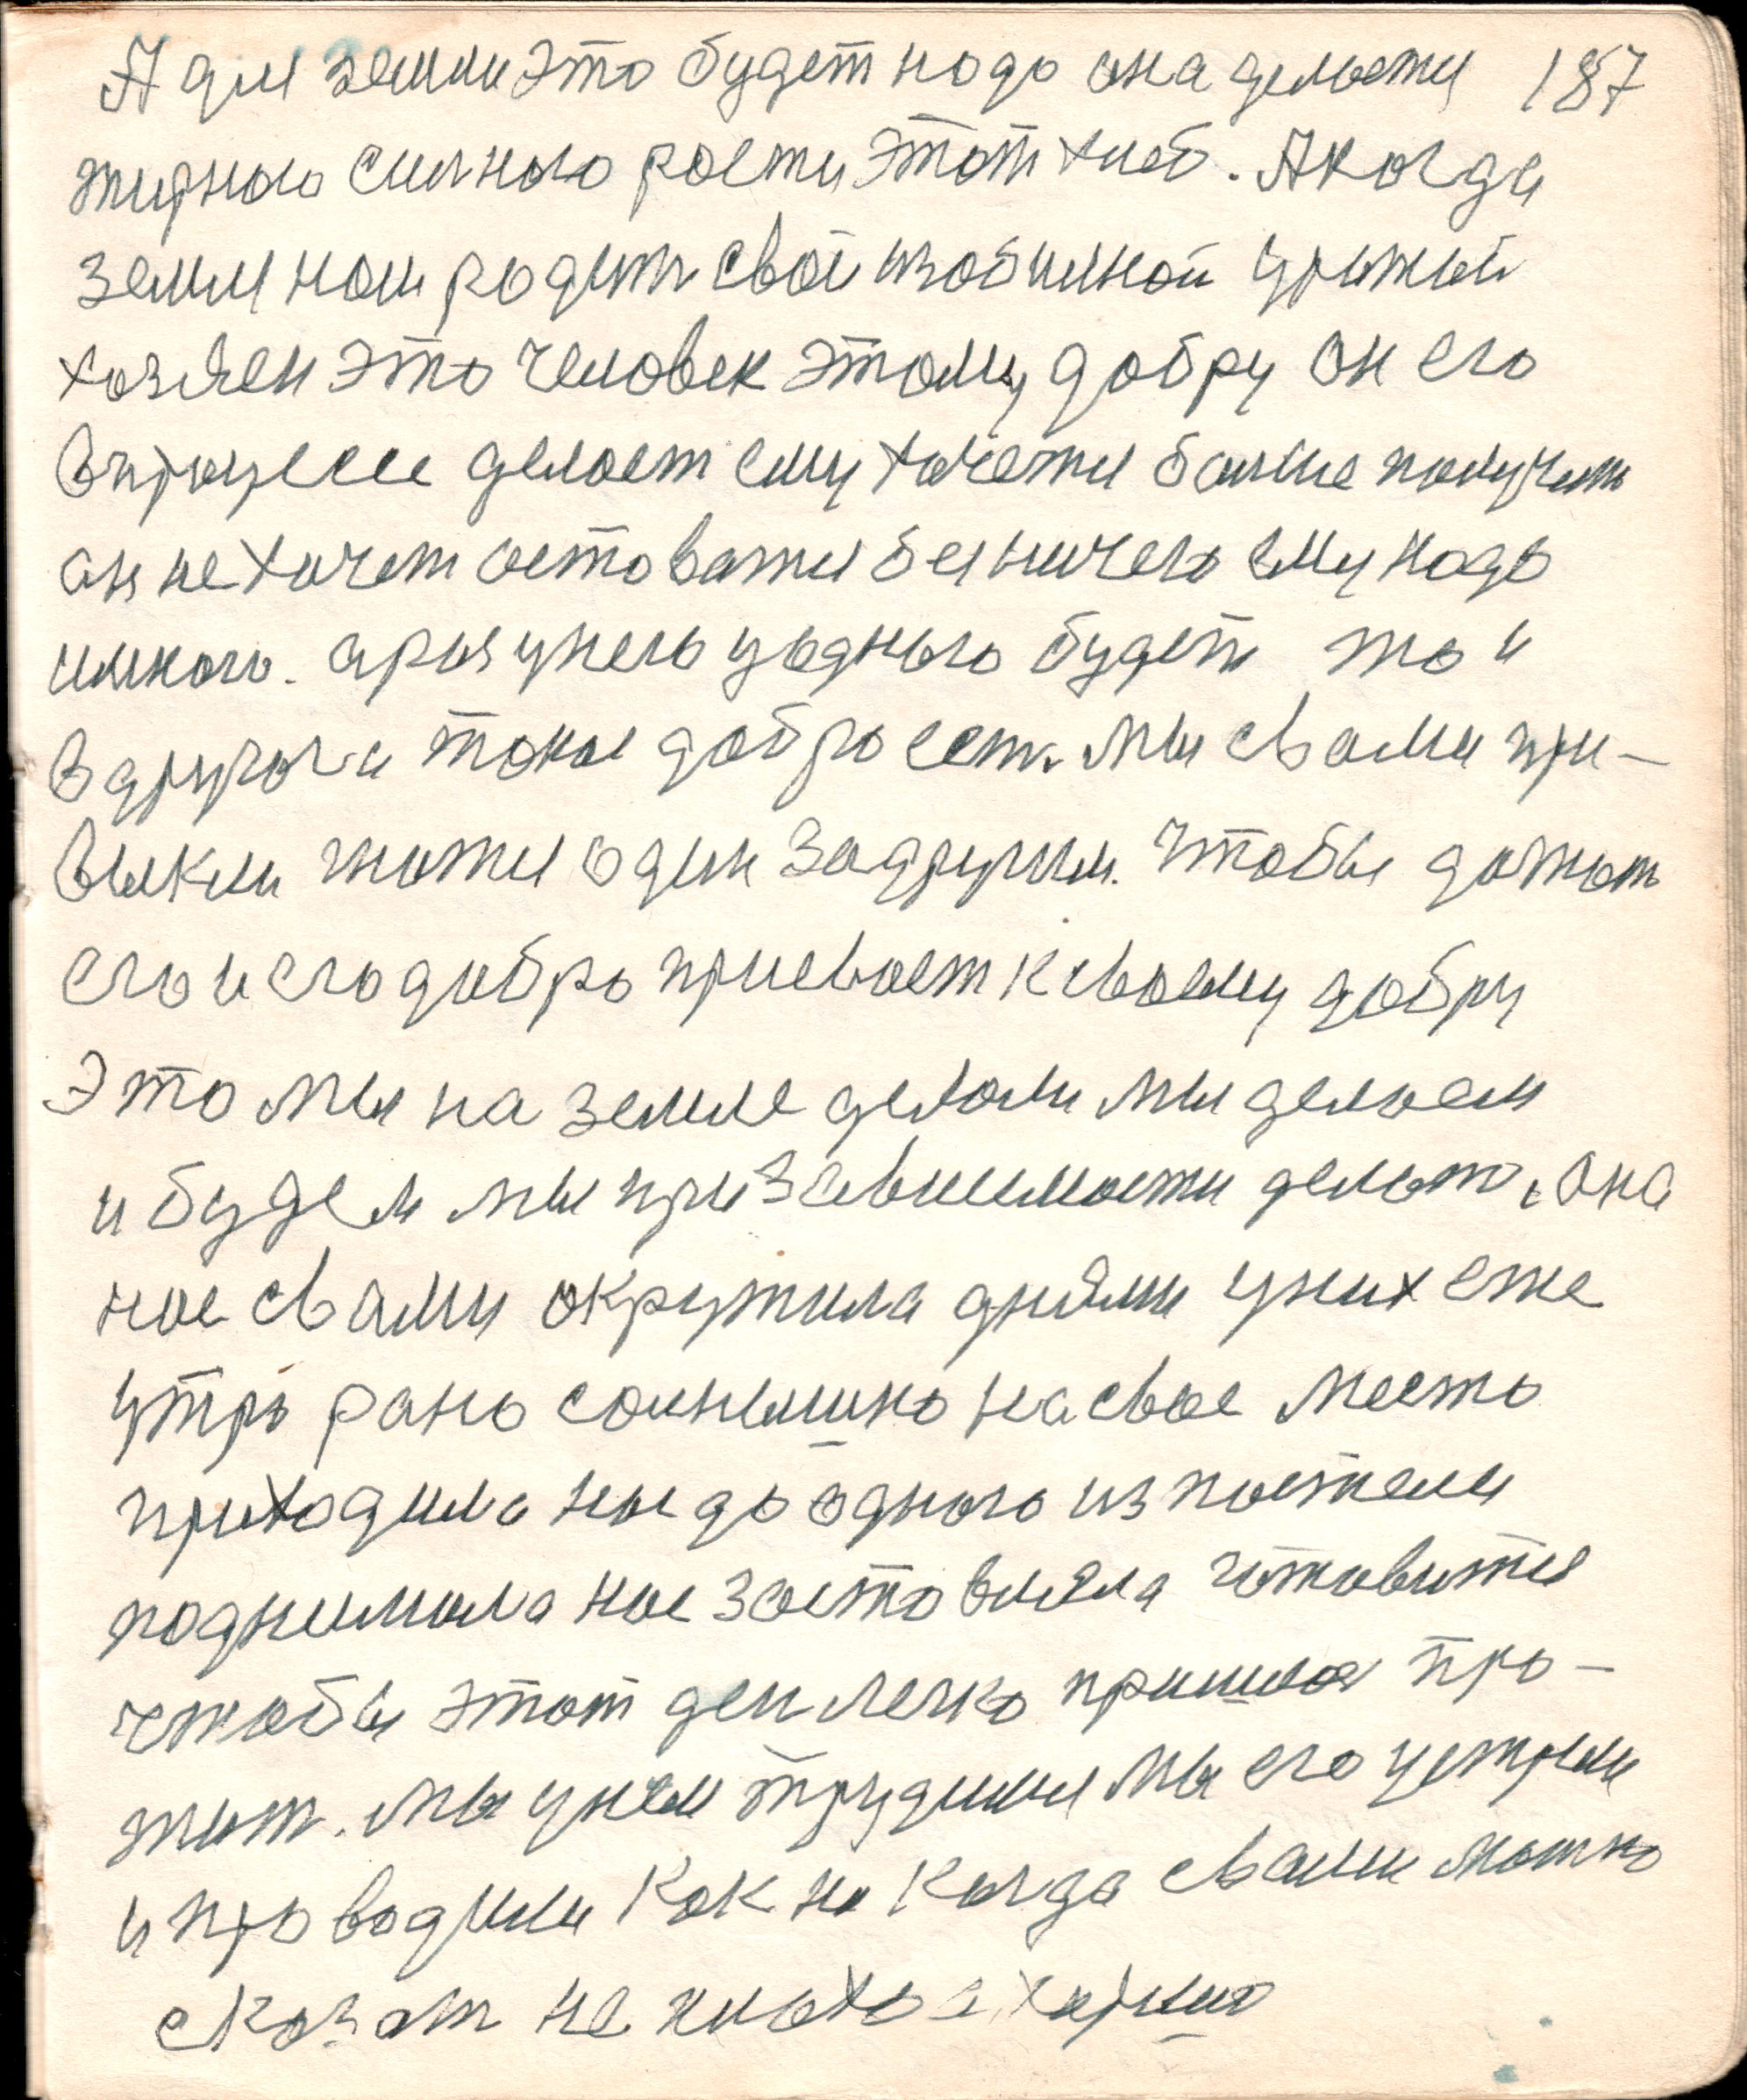 А для земли это будет надо она делается 187
жирного силного рости этот хлеб. А когда
земля нам родит свой изобилной уражай
хозяен это человек этому добру он его
в процессе делает ему хочется болше получит
он не хочет оставатся без ничего ему надо
много. а раз у него у одного будет то и
в другога такое добро ест. Мы с вами при-
выкли гнатся один за другим. Чтобы догнат
его и его добро присвоет к своему добру
Это мы на земле делали мы делаем
и будем мы при зависимости делат, она
нас с вами окружила днями у них еже
утро рано солнышко на свое место
приходила нас до одного из постели
поднимала нас заставляла готовится
чтобы этот ден легко пришлос про-
жит. Мы у нем трудимся мы его устрели
и проводили как некогда с вами можно
сказат не плохо а харшо